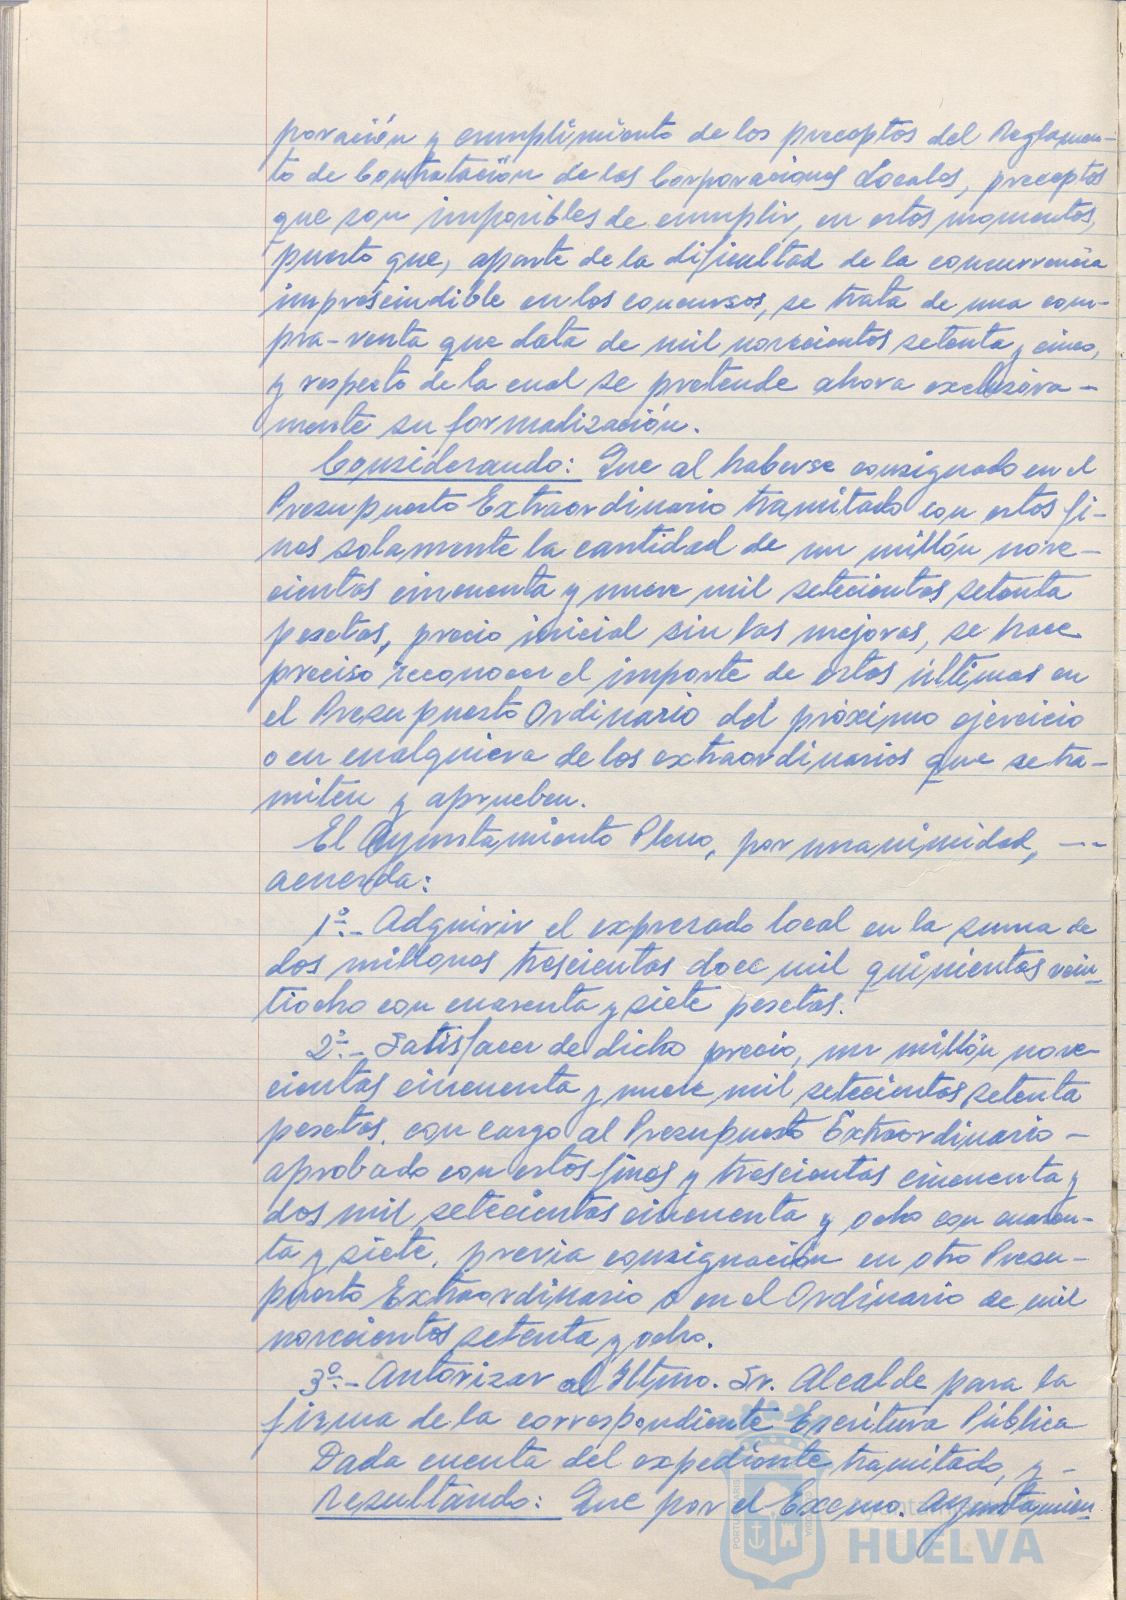 poración y cumplimiento de los preceptos del Reglamen-
to de Contratación de las Corporaciones Locales, preceptos
que son imposibles de cumplir, en estos momentos,
puesto que, aparte de la dificultad de la concurrencia
imprescindible en los concursos, se trata de una com-
pra-venta que data de mil novecientos setenta y cinco,
y respecto de la cual se pretende ahora exclusiva-
mente su formalización.
Considerando: Que al haberse consignado en el
Presupuesto Extraordinario tramitado con estos fi-
nes solamente la cantidad de un millón nove-
cientas cincuenta y nueve mil setecientas setenta
pesetas, precio inicial sin las mejoras, se hace
preciso reconocer el importe de estas últimas en
el Presupuesto Ordinario del próximo ejercicio
o en cualquiera de los extraordinarios que se tra-
miten y aprueben.
El Ayuntamiento Pleno, por unanimidad, --
acuerda:
1º.- Adquirir el expresado local en la suma de
dos millones trescientas doce mil quinientas vein-
tiocho con cuarenta y siete pesetas.
2º.- Satisfacer de dicho precio, un millón nove-
cientas cincuenta y nueve mil setecientas setenta
pesetas, con cargo al Presupuesto Extraordinario -
aprobado con estos fines y trescientas cincuenta y
dos mil setecientas cincuenta y ocho con cuaren-
ta y siete, previa consignación en otro Presu-
puesto Extraordinario o en el Ordinario de mil
novecientos setenta y ocho.
3º.- Autorizar al Iltmo. Sr. Alcalde para la
firma de la correspondiente Escritura Pública
Dada cuenta del expediente tramitado, y -
Resultando: Que por el Excmo. Ayuntamien-
HUELVA